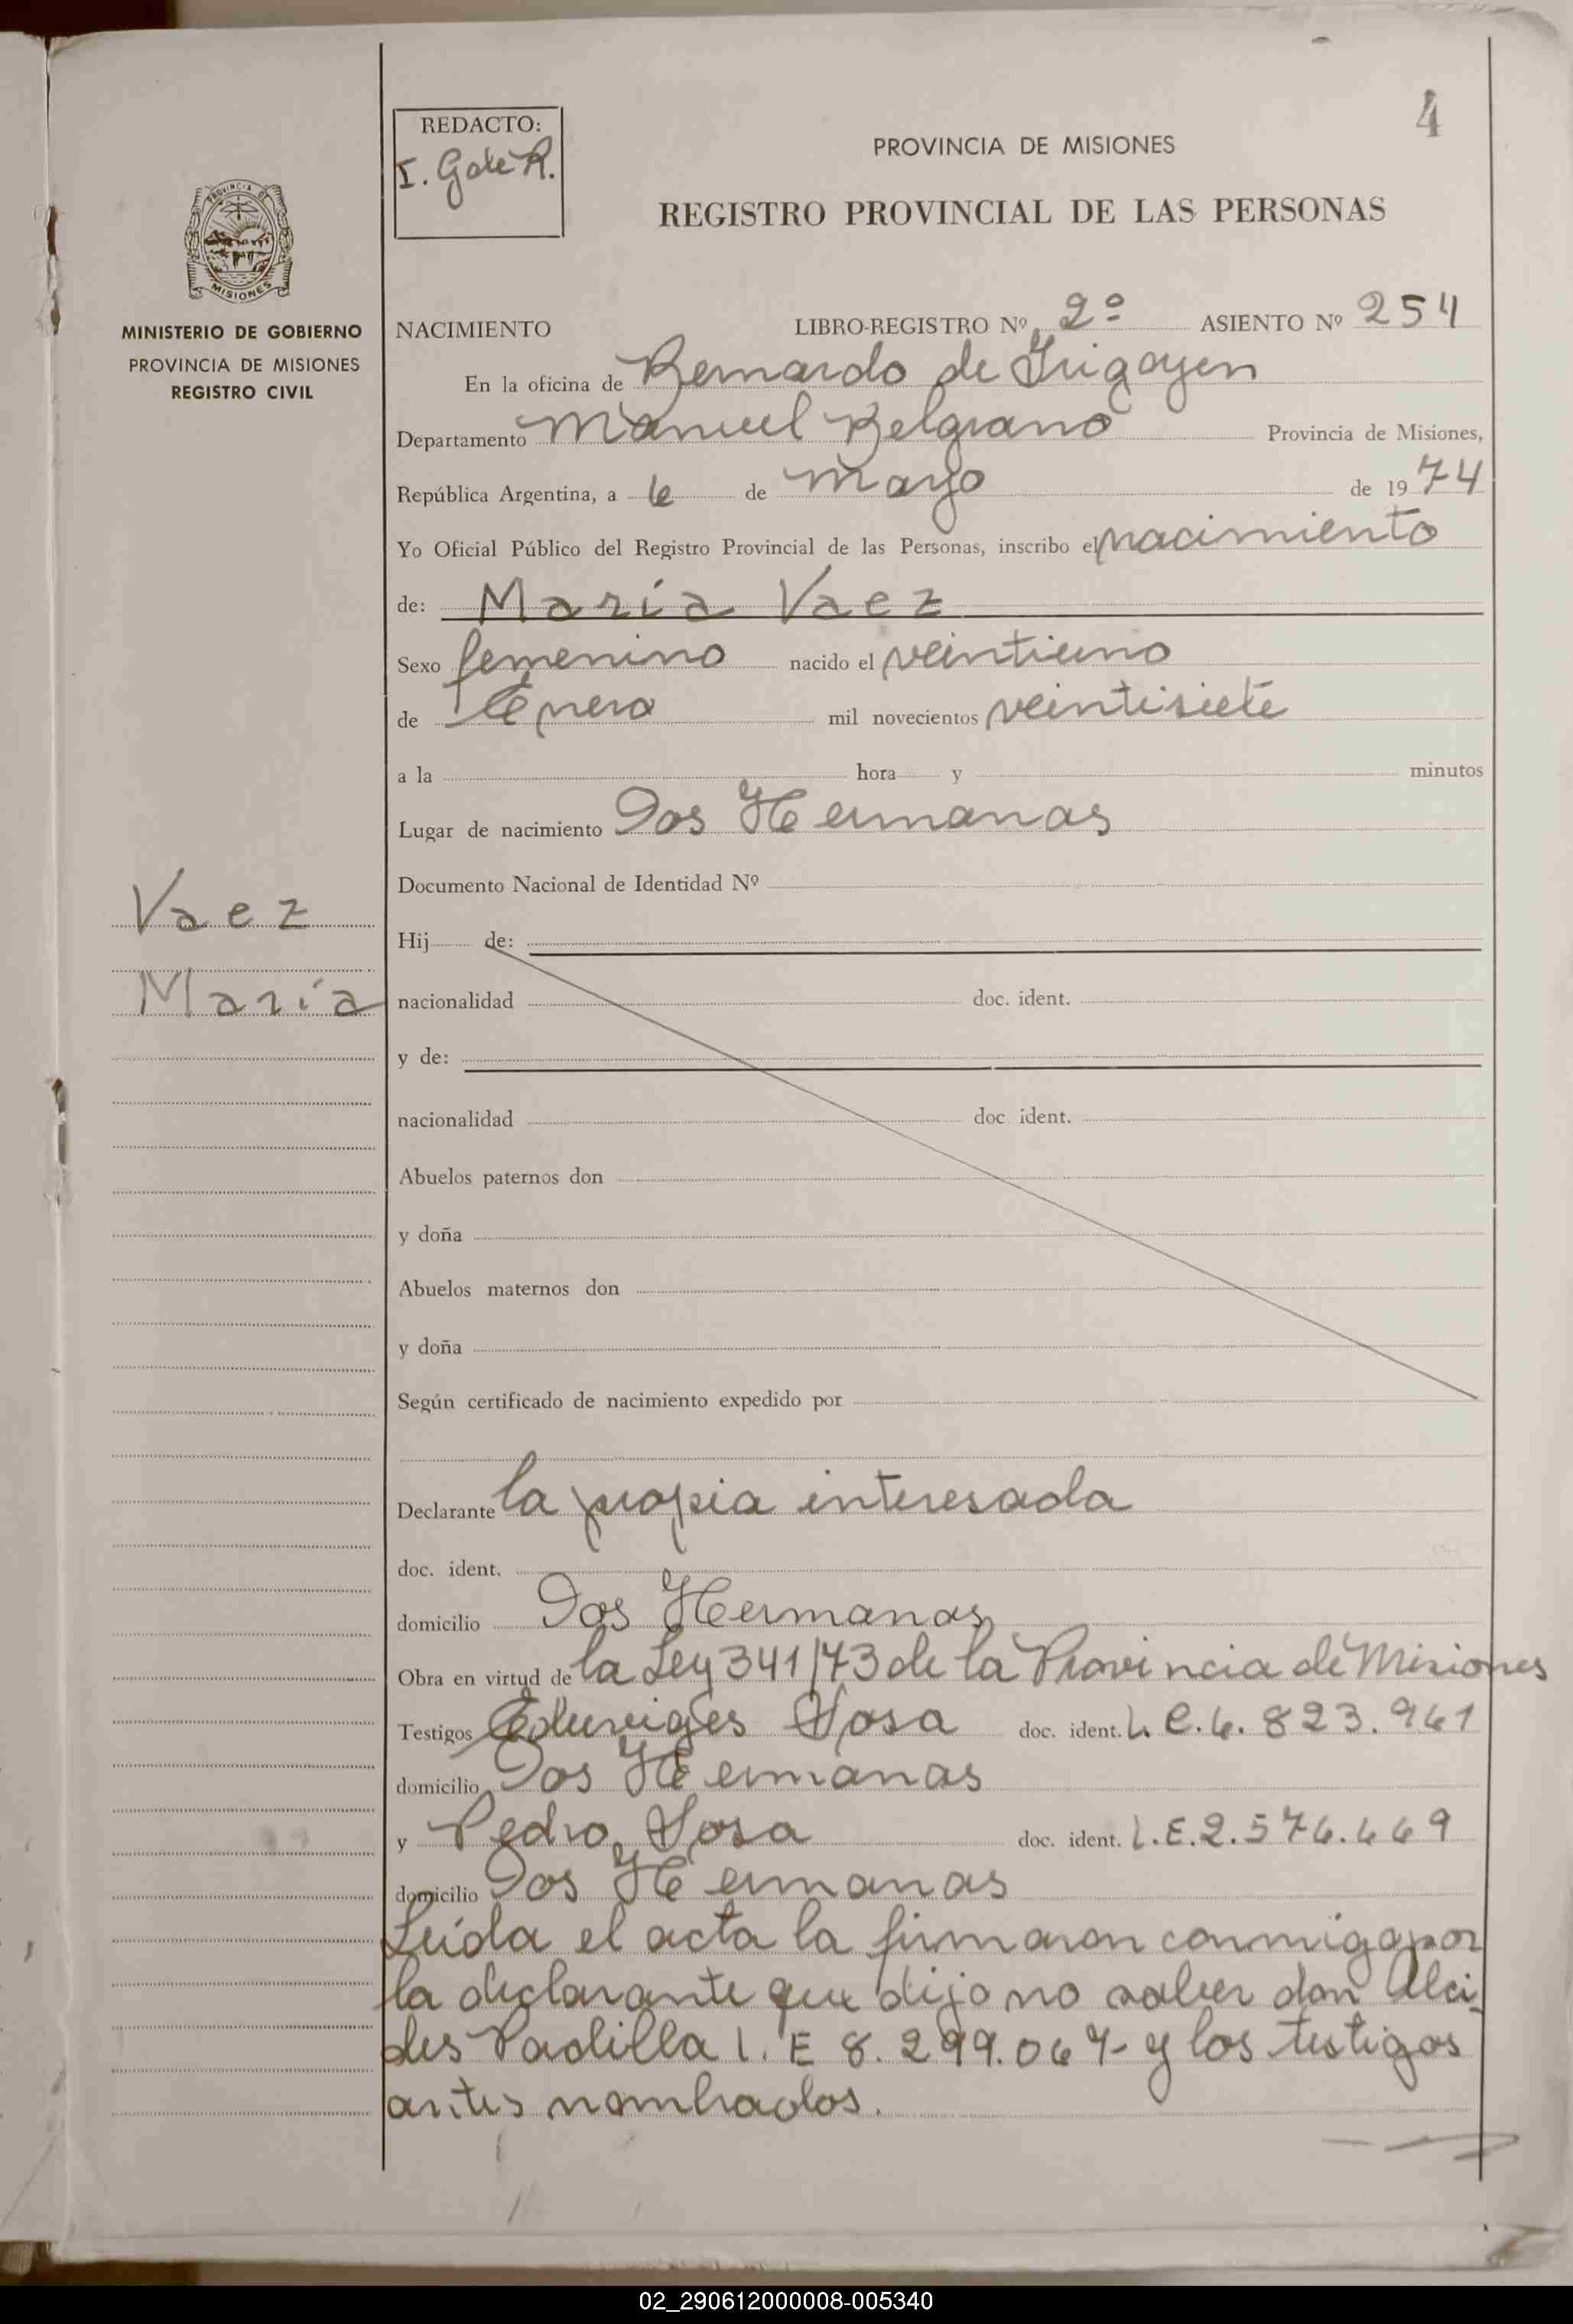 4
REDACTO:
I. Gale R.
PROVINCIA DE MISIONES
REGISTRO PROVINCIAL DE LAS PERSONAS
PROVINCIA DE
MISIONES
MINISTERIO DE GOBIERNO
PROVINCIA DE MISIONES
REGISTRO CIVIL
NACIMIENTO LIBRO-REGISTRO Nº 2º ASIENTO Nº 254
En la oficina de Bernardo de Irigoyen
Departamento Manuel Belgrano Provincia de Misiones,
República Argentina, a 6 de mayo de 1974
Yo Oficial Público del Registro Provincial de las Personas, inscribo el nacimiento
de: María Vaez
Sexo femenino nacido el veintiuno
de Enero mil novecientos veintisiete
a la hora y minutos
Lugar de nacimiento Dos Hermanas
Documento Nacional de Identidad Nº
Vaez
María
Hij de:
nacionalidad doc. ident.
y de:
nacionalidad doc. ident.
Abuelos paternos don
y doña
Abuelos maternos don
y doña
Según certificado de nacimiento expedido por
Declarante la propia interesada
doc. ident.
domicilio Dos Hermanas
Obra en virtud de la Ley 341/73 de la Provincia de Misiones
Testigos Eduviges Sosa doc. ident. L.C.6.823.961
domicilio Dos Hermanas
y Pedro Sosa doc. ident. L.E.2.576.669
domicilio Dos Hermanas
Leída el acta la firmaron conmigo por
la declarante que dijo no saber don Alci
des Padilla L.E 8.299.067- y los testigos
antes nombrados.
02_290612000008-005340